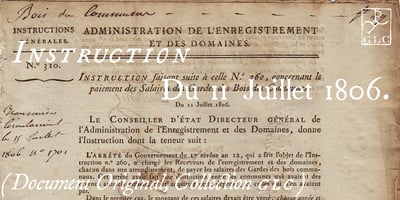 Bois de Communes
INSTRUCTIONS
GÉNÉRALES.
N.° 310.
ADMINISTRATION DE L'ENREGISTREMENT
ET DES DOMAINES.
GLC
Instruction
Du 11 Juillet 1806.
INSTRUCTION faisant suite à celle N.° 260, concernant le
paiement des Salaires des Gardes des Bois des Communes.
Du 11 Juillet 1806.
le 15 Juillet
1806 N° 1701
LE CONSEILLER D'ÉTAT DIRECTEUR GÉNÉRAL de
l'Administration de l'Enregistrement et des Domaines, donne
l'Instruction dont la teneur suit :
L'ARRÊTÉ du Gouvernement du 17 nivôse an 12, qui a fait l'objet de l'Ins-
truction n.° 260, a chargé les Receveurs de l'enregistrement et des domaines,
chacun dans son arrondissement, de payer les salaires des Gardes des bois com-
munaux
(Document Original, Collection GLC)
Dans le premier cas, le montant de ces salaires devait être versé, chaque année